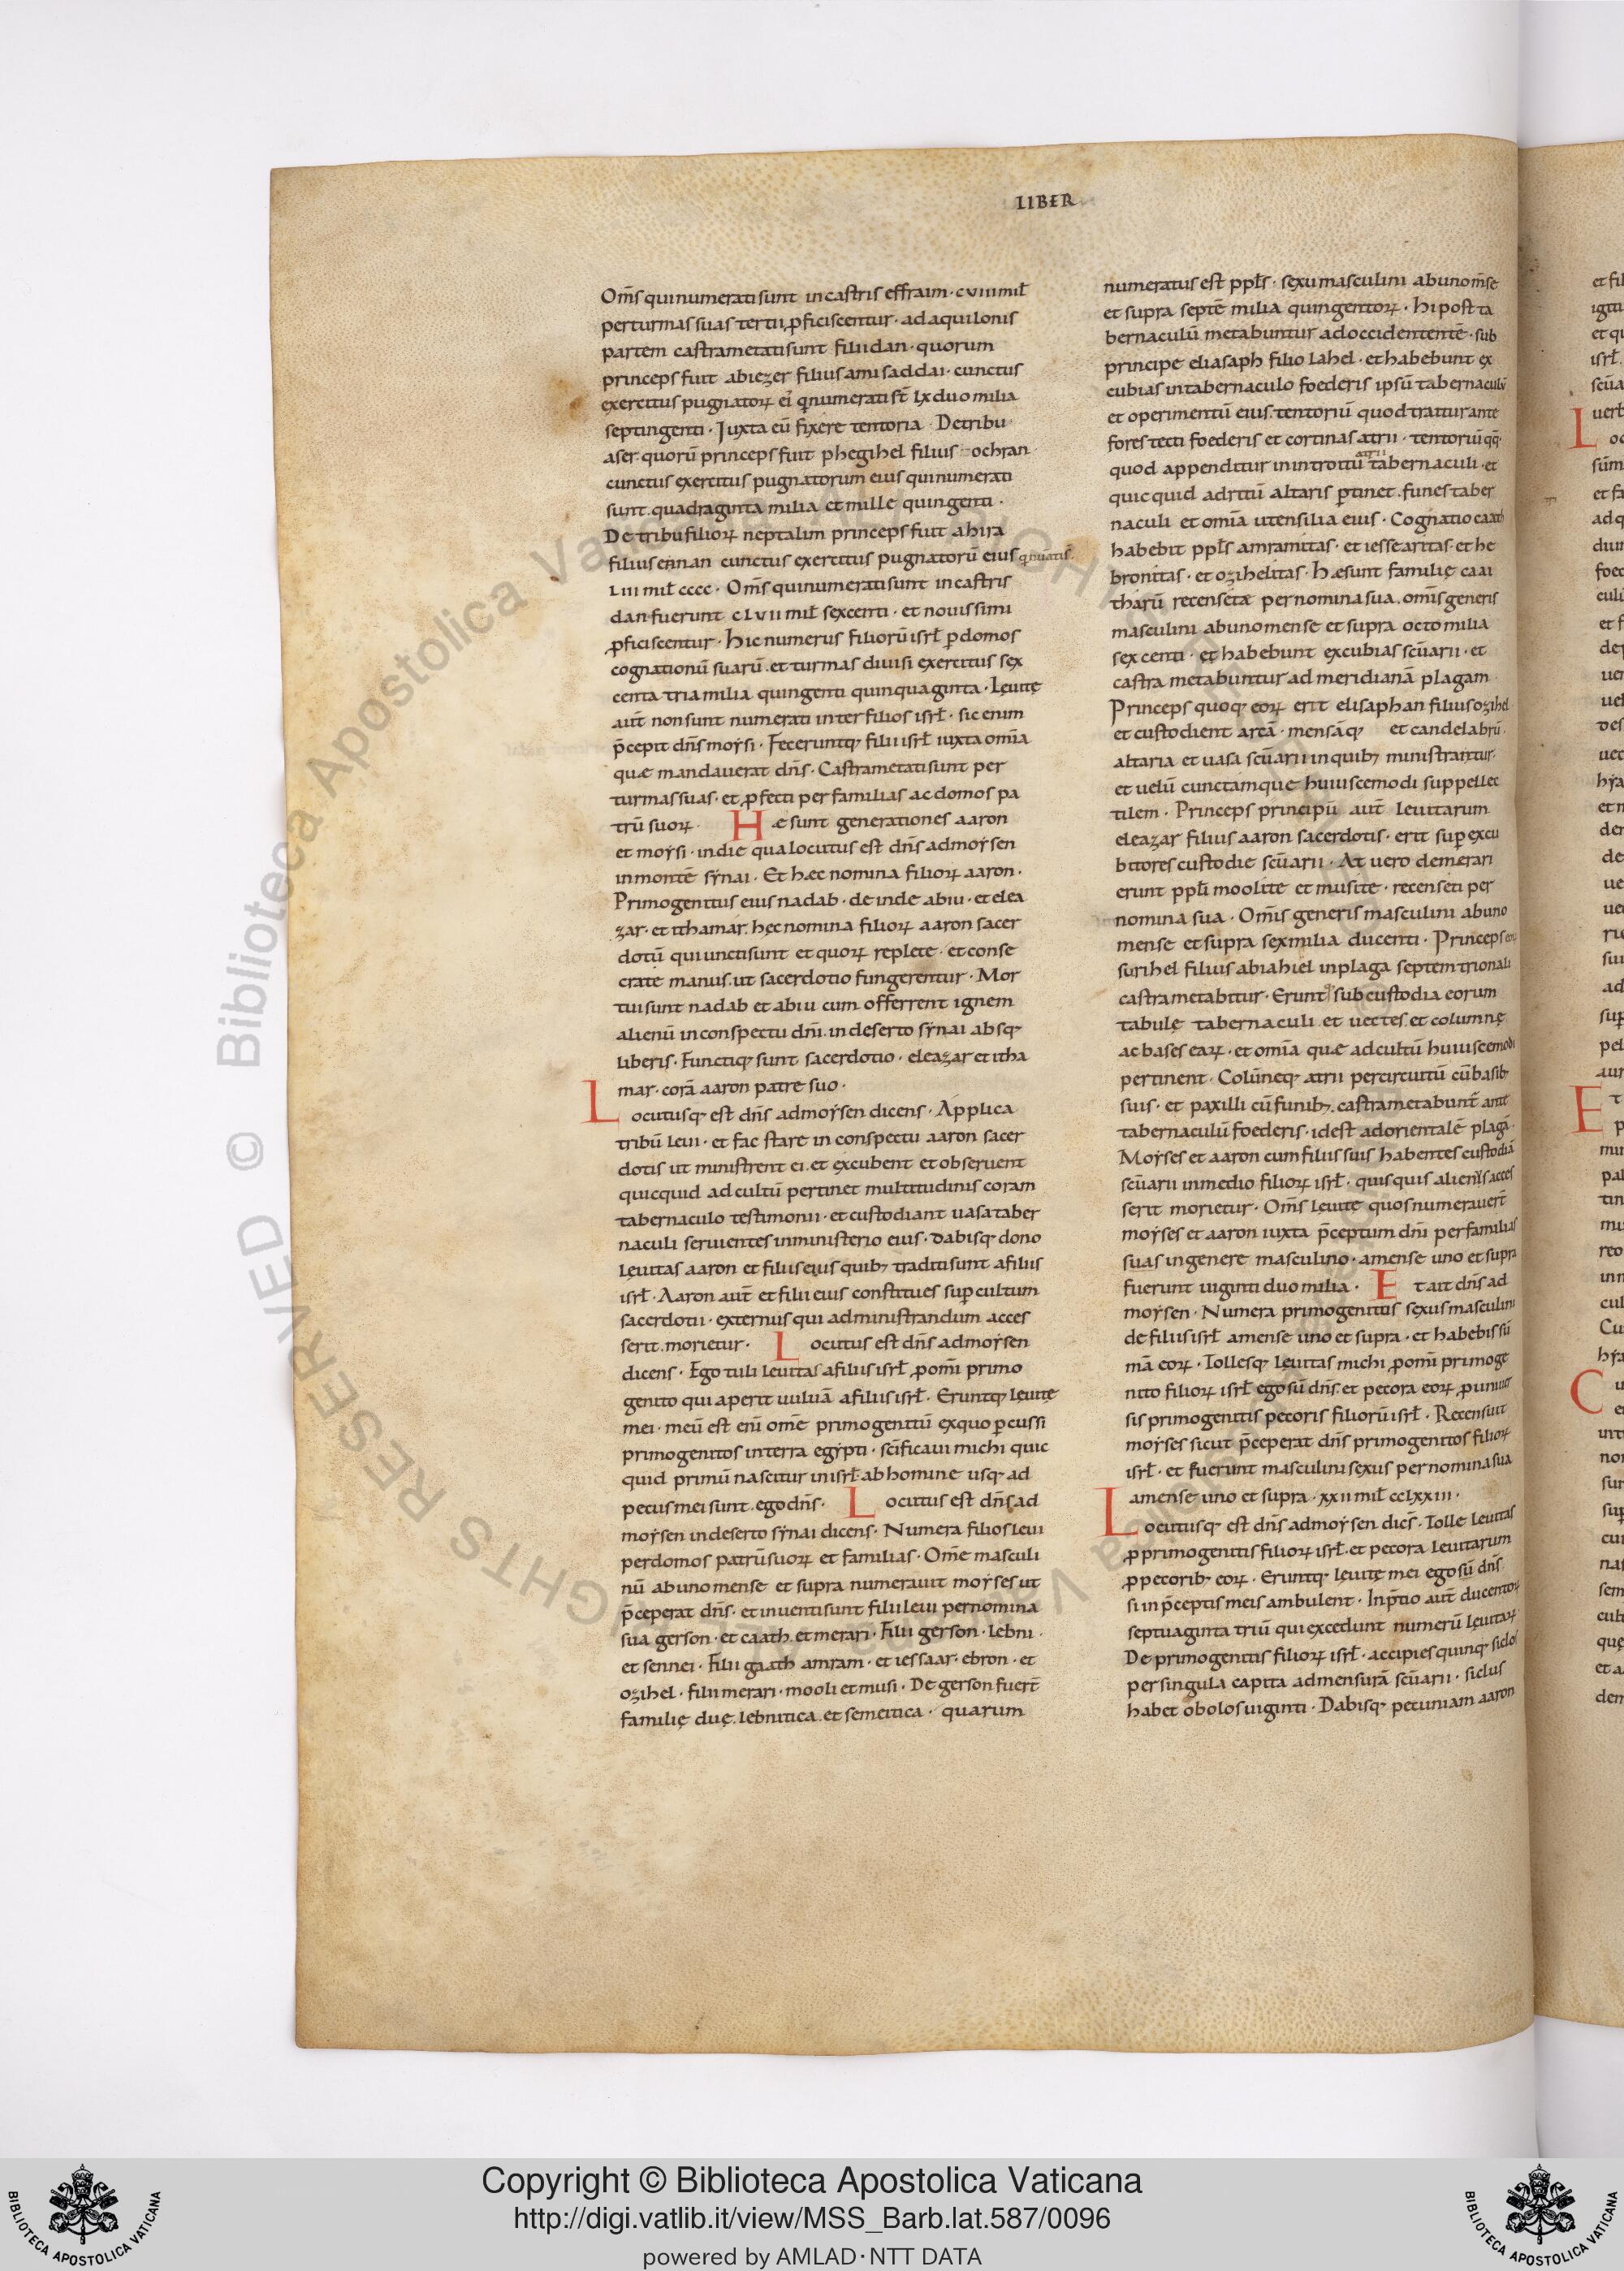 LIBER
Om̅s qui numerati sunt in castris effraim · cviii mil̅
per turmas suas tertii ꝓficiscentur · ad aquilonis
partem castra metati sunt filii dan · quorum
princeps fuit abiezer filius amisaddai · cunctus
exercitus pugnatoꝝ ei᷒ q̅ numerati st̅ lx duo milia
septingenti · Iuxta eu̅ fixere tentoria · De tribu
aser quoru̅ princeps fuit phegihel filius ochran ·
cunctus exercitus pugnatorum eius qui numerati
sunt · quadraginta milia et mille quingenti ·
De tribu filioꝝ neptalim princeps fuit ahira
filius ennan cunctus exercitus pugnatoru̅ eius
liii mil̅ cccc · Om̅s qui numerati sunt in castris
dan · fuerunt clvii mil̅ sexcenti · et novissimi
ꝓficiscentur · Hic numerus filioru̅ isrl̅ ꝑ domos
cognationu̅ suaru̅ · et turmas divisi exercitus sex
centa tria milia quingenti quinquaginta · Leuitę
aut̅ non sunt numerati inter filios isrl̅ · sic enim
p̅cepit dn̅s moẏsi · Feceruntq; filii isrl̅ iuxta om̅ia
quæ mandauerat dn̅s · Castra metati sunt per
turmas suas · et ꝓfecti per familias ac domos pa
tru̅ suoꝝ · Hæ sunt generationes aaron
et moẏsi · in die qua locutus est dn̅s ad moẏsen
in monte̅ sẏnai · Et hæc nomina filioꝝ aaron ·
Primogenitus eius nadab · deinde abiu · et elea
zar · et ithamar · hęc nomina filioꝝ aaron sacer
dotu̅ qui uncti sunt et quoꝝ replete · et conse
crate manus · ut sacerdotio fungerentur · Mor
tui sunt nadab et abiu cum offerrent ignem
alienu̅ in conspectu dn̅i · in deserto sẏnai absq;
liberis · Functiq; sunt sacerdotio · eleazar et itha
mar · cora̅ aaron patre suo ·
Locutusq; est dn̅s ad moẏsen dicens · Applica
tribu̅ leui · et fac stare in conspectu aaron sacer
dotis ut ministrent ei · et excubent et obseruent
quicquid ad cultu̅ pertinet multitudinis coram
tabernaculo testimonii · et custodiant uasa taber
naculi seruientes in ministerio eius · Dabisq; dono
leuitas aaron et filiis eius quib; traditi sunt a filiis
isrl̅ · Aaron aut̅ et filii eius constitues suꝑ cultum
sacerdotii · externus qui administrandum acces
serit · morietur · Locutus est dn̅s ad moẏsen
dicens · Ego tuli leuitas a filiis isrl̅ ꝓ om̅i primo
genito qui aperit uulua̅ a filiis isrl̅ · Eruntq; leuitę
mei · meu̅ est eni̅ om̅e primogenitu̅ ex quo ꝑcussi
primogenitos in terra egẏpti · sc̅ificaui michi quic
quid primu̅ nascitur in isrl̅ ab homine usq; ad
pecus mei sunt · ego dn̅s · Locutus est dn̅s ad
moẏsen in deserto sẏnai dicens · Numera filios leui
per domos patru̅ suoꝝ et familias · Om̅e masculi
nu̅ ab uno mense et supra numerauit moẏses ut
p̅ceperat dn̅s · et inuenti sunt filii leui per nomina
sua gerson · et caath · et merari · Filii gerson · lebni ·
et sennei · Filii gaath amram · et iessaar · ebron · et
ozihel · filii merari · mooli et musi · De gerson fuer̅t
familię duę · lebnitica · et semeitica · quarum
numeratus est ppl̅s · sexu masculini ab uno m̅se
et supra septe̅ milia quingentoꝝ · hi post ta
bernaculu̅ metabuntur ad occidentente̅ · sub
principe eliasaph filio lahel · et habebunt ex
cubias in tabernaculo foederis ipsu̅ tabernaculu̅
et operimentu̅ eius · tentoriu̅ quod trattur ante
fores tecti foederis et cortinas atrii · tentoriu̅ qq̅·
atrii
quod appenditur in introitu̅ tabernaculi · et
quicquid ad ritu̅ altaris ꝑtinet · funes taber
naculi et om̅ia utensilia eius · Cognatio caath
habebit ppl̅s amramitas · et iessearitas · et he
bronitas · et ozihelitas · Hæ sunt familię caai
tharu̅ recensitæ per nomina sua · om̅is generis
masculini ab uno mense et supra octo milia
sexcenti · et habebunt excubias sc̅uarii · et
castra metabuntur ad meridiana̅ plagam
Princeps quoq; eoꝝ erit elisaphan filius ozihel
et custodient arca̅ · mensa̅q; et candelabru̅ ·
altaria et uasa sc̅uarii in quib; ministrantur ·
et uelu̅ cunctamque huiuscemodi suppellec
tilem · Princeps principu̅ aut̅ leuitarum
eleazar filius aaron sacerdotis · erit suꝑ excu
bitores custodie sc̅uarii · At uero de merari
erunt ppl̅i moolite et musite · recenseti per
nomina sua · Om̅is generis masculini ab uno
mense et supra sex milia ducenti · Princeps eoꝝ
surihel filius abiahiel in plaga septemtrionali
castra metabitur · Erunt sub custodia eorum
tabulę tabernaculi · et uectes · et columnę
ac bases eaꝝ · et om̅ia quæ ad cultu̅ huiuscemodi
pertinent · Colu̅neq; atrii per circuitu̅ cu̅ basib;
suis · et paxilli cu̅ funib; · castra metabunt̅ ante
tabernaculu̅ foederis · id est ad orientale̅ plaga̅ ·
Moẏses et aaron cum filiis suis habentes custodia̅
sc̅uarii in medio filioꝝ isrl̅ · quisquis alienus acces
serit morietur · Om̅s leuite quos numerauer̅t
moẏses et aaron iuxta p̅ceptum dn̅i per familias
suas in genere masculino · a mense uno et supra
fuerunt uiginti duo milia · Et ait dn̅s ad
moẏsen · Numera primogenitus sexus masculini
de filiis isrl̅ a mense uno et supra · et habebis su̅
ma̅ eoꝝ · Tollesq; leuitas michi ꝓ om̅i primoge
nito filioꝝ isrl̅ ego su̅ dn̅s · et pecora eoꝝ ꝓ uniuer
sis primogenitis pecoris filioru̅ isrl̅ · Recensuit
moẏses sicut p̅ceperat dn̅s primogenitos filioꝝ
isrl̅ · et fuerunt masculini sexus per nomina sua
a mense uno et supra · xxii mil̅ cclxxiii ·
Locutusq; est dn̅s ad moẏsen dice̅s · Tolle leuitas
ꝓ primogenitis filioꝝ isrl̅ · et pecora leuitarum
ꝓ pecorib; eoꝝ · Eruntq; leuitę mei ego su̅ dn̅s
si in p̅ceptis meis ambulent · In p̅tio aut̅ ducentoꝝ
septuaginta triu̅ qui excedunt numeru̅ leuitaꝝ
De primogenitis filioꝝ isrl̅ · accipies quinq; siclos
per singula capita ad mensura̅ sc̅uarii · siclus
habet obolos uiginti · Dabisq; pecuniam aaron
Copyright © Biblioteca Apostolica Vaticana
http://digi.vatlib.it/view/MSS_Barb.lat.587/0096
powered by AMLAD·NTT DATA
BIBLIOTECA APOSTOLICA VATICANA
BIBLIOTECA APOSTOLICA VATICANA